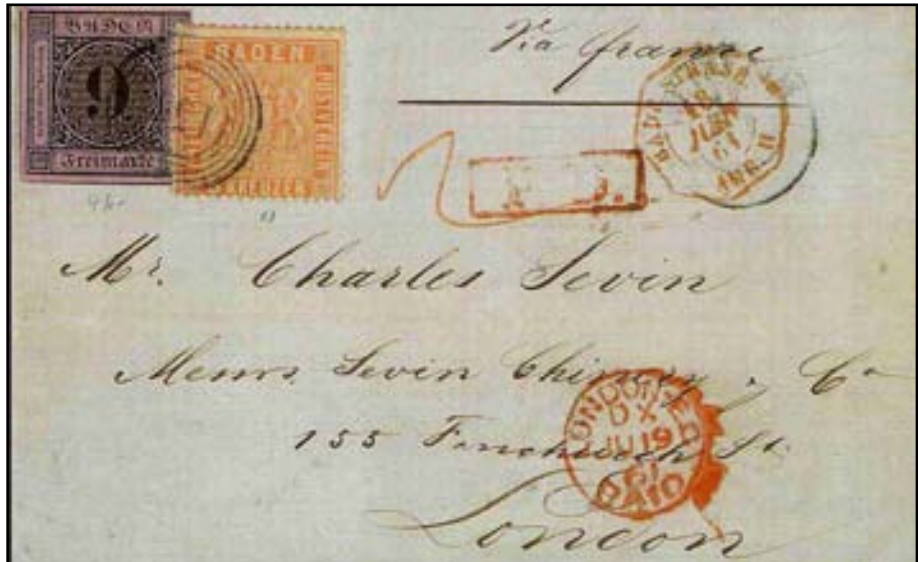 BADEN
9
Freimarke
BADEN
KREUZER
Via france
18
JUIN
61
AMB. H
P.D.
Mr. Charles Sevin
Messrs. Sevin & Co
155 Fenchurch St.
London
LONDON-E
DX
JU 19
61
PAID